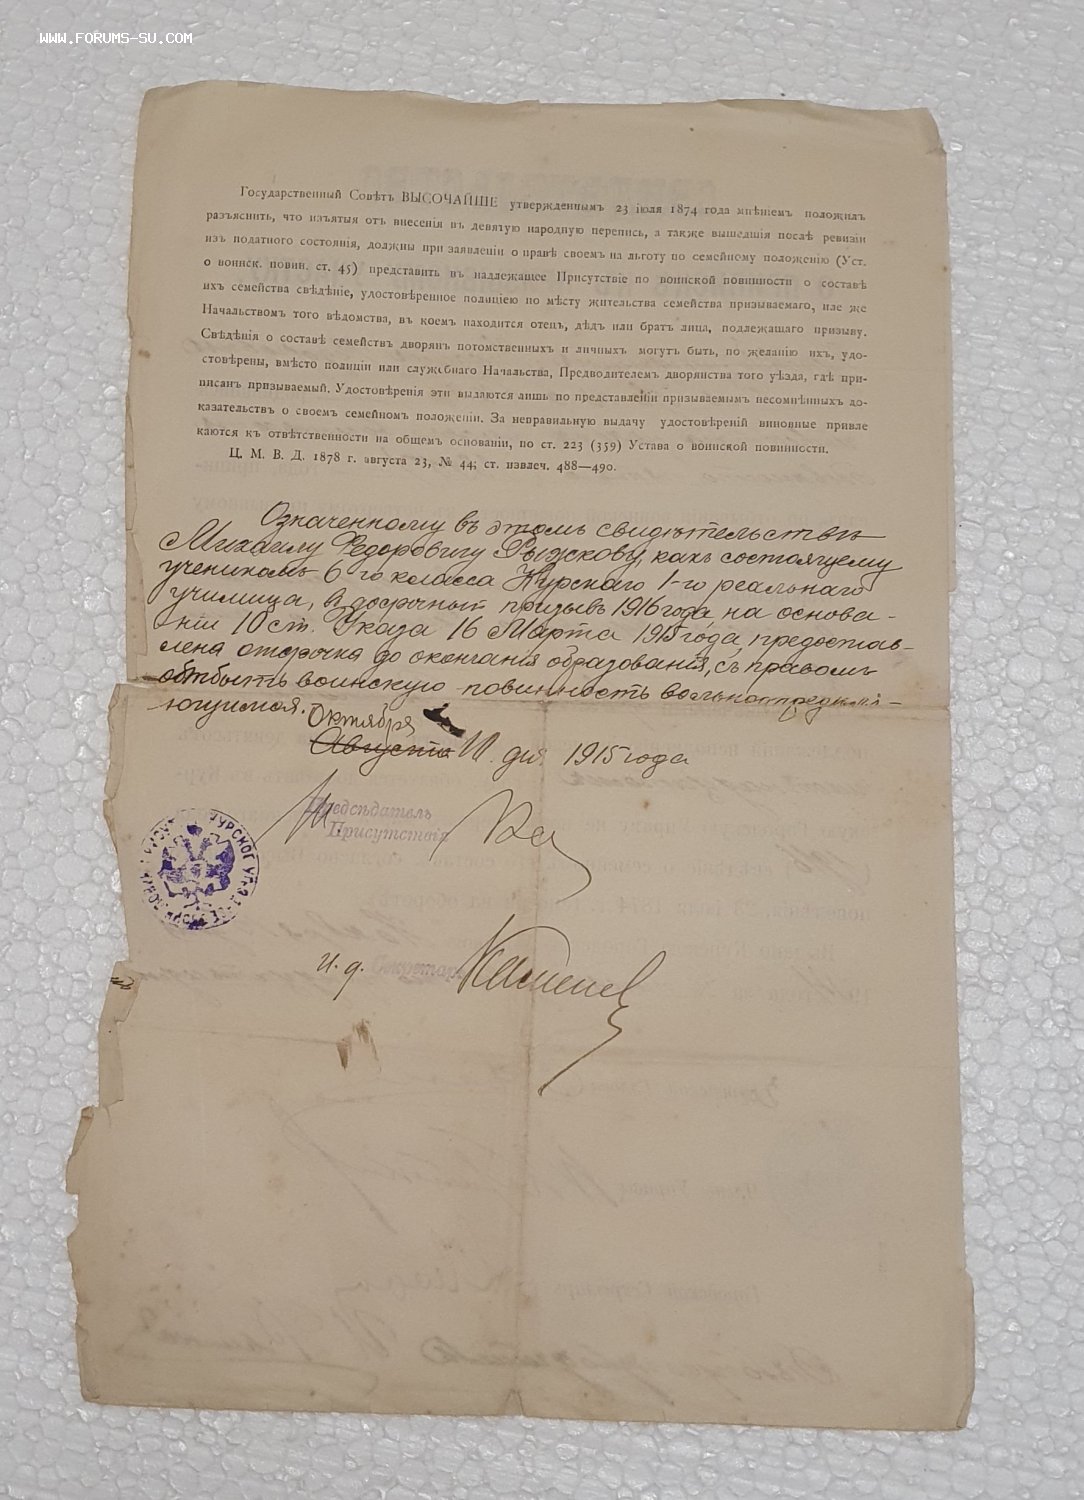 WWW.FORUMS-SU.COM
Государственный Совѣтъ ВЫСОЧАЙШЕ утвержденнымъ 23 июля 1874 года мнѣніемъ положилъ
разъяснить, что изъятыя отъ внесенія въ девятую народную перепись, а также вышедшія послѣ ревизіи
изъ податного состоянія, должны при заявленіи о правѣ своемъ на льготу по семейному положенію (Уст.
о воинск. повин. ст. 45) представить въ надлежащее Присутствіе по воинской повинности о составѣ
ихъ семейства свѣдѣніе, удостовѣренное полиціею по мѣсту жительства семейства призываемаго, иле же
Начальствомъ того вѣдомства, въ коемъ находится отецъ, дѣдъ или братъ лица, подлежащаго призыву.
Свѣдѣнія о составѣ семействъ дворянъ потомственныхъ и личныхъ могутъ быть, по желанію ихъ, удо-
стовѣрены, вмѣсто полиціи или служебнаго Начальства, Предводителемъ дворянства того уѣзда, гдѣ при-
писанъ призываемый. Удостовѣренія эти выдаются лишь по представленіи призываемымъ несомнѣнныхъ до-
казательствъ о своемъ семейномъ положеніи. За неправильную выдачу удостовѣреній виновные привле
каются къ отвѣтственности на общемъ основаніи, по ст. 223 (359) Устава о воинской повинности.
Ц. М. В. Д. 1878 г. августа 23, № 44; ст. извлеч. 488—490.
Означенному въ этомъ свидѣтельствѣ
Михаилу Федоровичу Рыжкову, какъ состоящему
ученикомъ 6-го класса Курскаго 1-го реальнаго
училища, въ досрочный призывъ 1916 года, на основа-
ніи 10 ст. Указа 16 Марта 1915 года, предостав-
лена отсрочка до окончанія образованія, съ правомъ
отбыть воинскую повинность вольноопредѣля-
ющимся.
Октября
Августа 11 дня 1915 года
Предсѣдатель
Присутствія
КУРСКОЕ УѢЗД
и. д. Секретарь